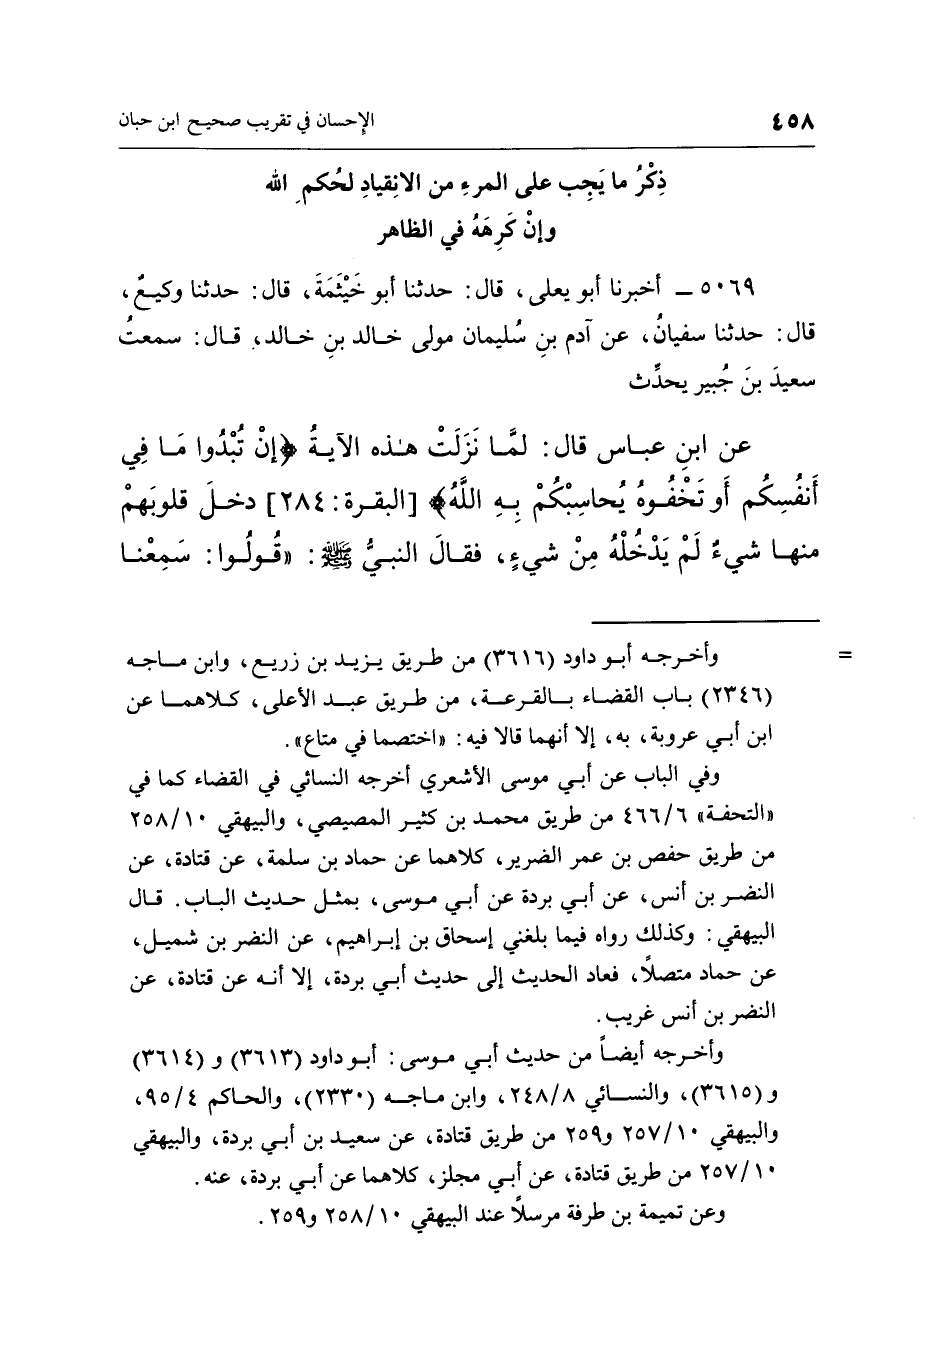 ٤٥٨ الإحسان في تقريب صحيح ابن حبان
ذِكْرُ ما يَجِب على المرءِ من الانِقيادِ لحُكمِ الله
وإنْ كَرِهَهُ في الظاهر
٥٠٦٩ ــ أخبرنا أبو يعلى، قال: حدثنا أبو خَيْثَمَةَ، قال: حدثنا وكيـعٌ،
قال: حدثنا سفيانُ، عن آدم بنِ سُليمان مولى خـالد بنِ خـالد، قـال: سمعتُ
سعيدَ بنَ جُبير يحدِّث
عن ابنِ عبـاس قال: لمَّـا نَزَلَتْ هـٰذه الآيـةُ ﴿إنْ تُبْدُوا مَـا فِي
أَنفُسِكُم أو تَخْفُـوهُ يُحاسِبْكُمْ بِـهِ اللَّهُ﴾ [البقـرة: ٢٨٤] دخـلَ قلوبَهمْ
منهـا شيءٌ لَمْ يَدْخُلْهُ مِنْ شيءٍ، فقـالَ النبيُّ ﷺ: «قُـولُـوا: سَمِعْنـا
= وأخـرجـه أبـو داود (٣٦١٦) من طـريق يـزيـد بن زريـع، وابن مـاجـه
(٢٣٤٦) بـاب القضـاء بـالقـرعـة، من طـريق عبـد الأعلى، كـلاهمـا عن
ابن أبـي عروبة، به، إلا أنهما قالا فيه: «اختصما في متاع».
وفي الباب عن أبـي موسى الأشعري أخرجه النسائي في القضاء كما في
«التحفة» ٤٦٦/٦ من طريق محمـد بن كثيـر المصيصي، والبيهقي ٢٥٨/١٠
من طريق حفص بن عمر الضرير، كلاهما عن حماد بن سلمة، عن قتادة، عن
النضـر بن أنس، عن أبـي بردة عن أبـي مـوسى، بمثـل حـديث البـاب. قـال
البيهقي: وكذلك رواه فيما بلغني إسحاق بن إبـراهيم، عن النضر بن شميـل،
عن حماد متصلًا، فعاد الحديث إلى حديث أبـي بردة، إلا أنـه عن قتادة، عن
النضر بن أنس غريب.
وأخـرجه أيضـاً من حديث أبـي مـوسى: أبـو داود (٣٦١٣) و (٣٦١٤)
و (٣٦١٥)، والنسـائي ٢٤٨/٨، وابن مـاجـه (٢٣٣٠)، والحـاكم ٩٥/٤،
والبيهقي ٢٥٧/١٠ و٢٥٩ من طريق قتادة، عن سعيد بن أبـي بردة، والبيهقي
٢٥٧/١٠ من طريق قتادة، عن أبـي مجلز، كلاهما عن أبـي بردة، عنه.
وعن تميمة بن طرفة مرسلًا عند البيهقي ٢٥٨/١٠ و٢٥٩.